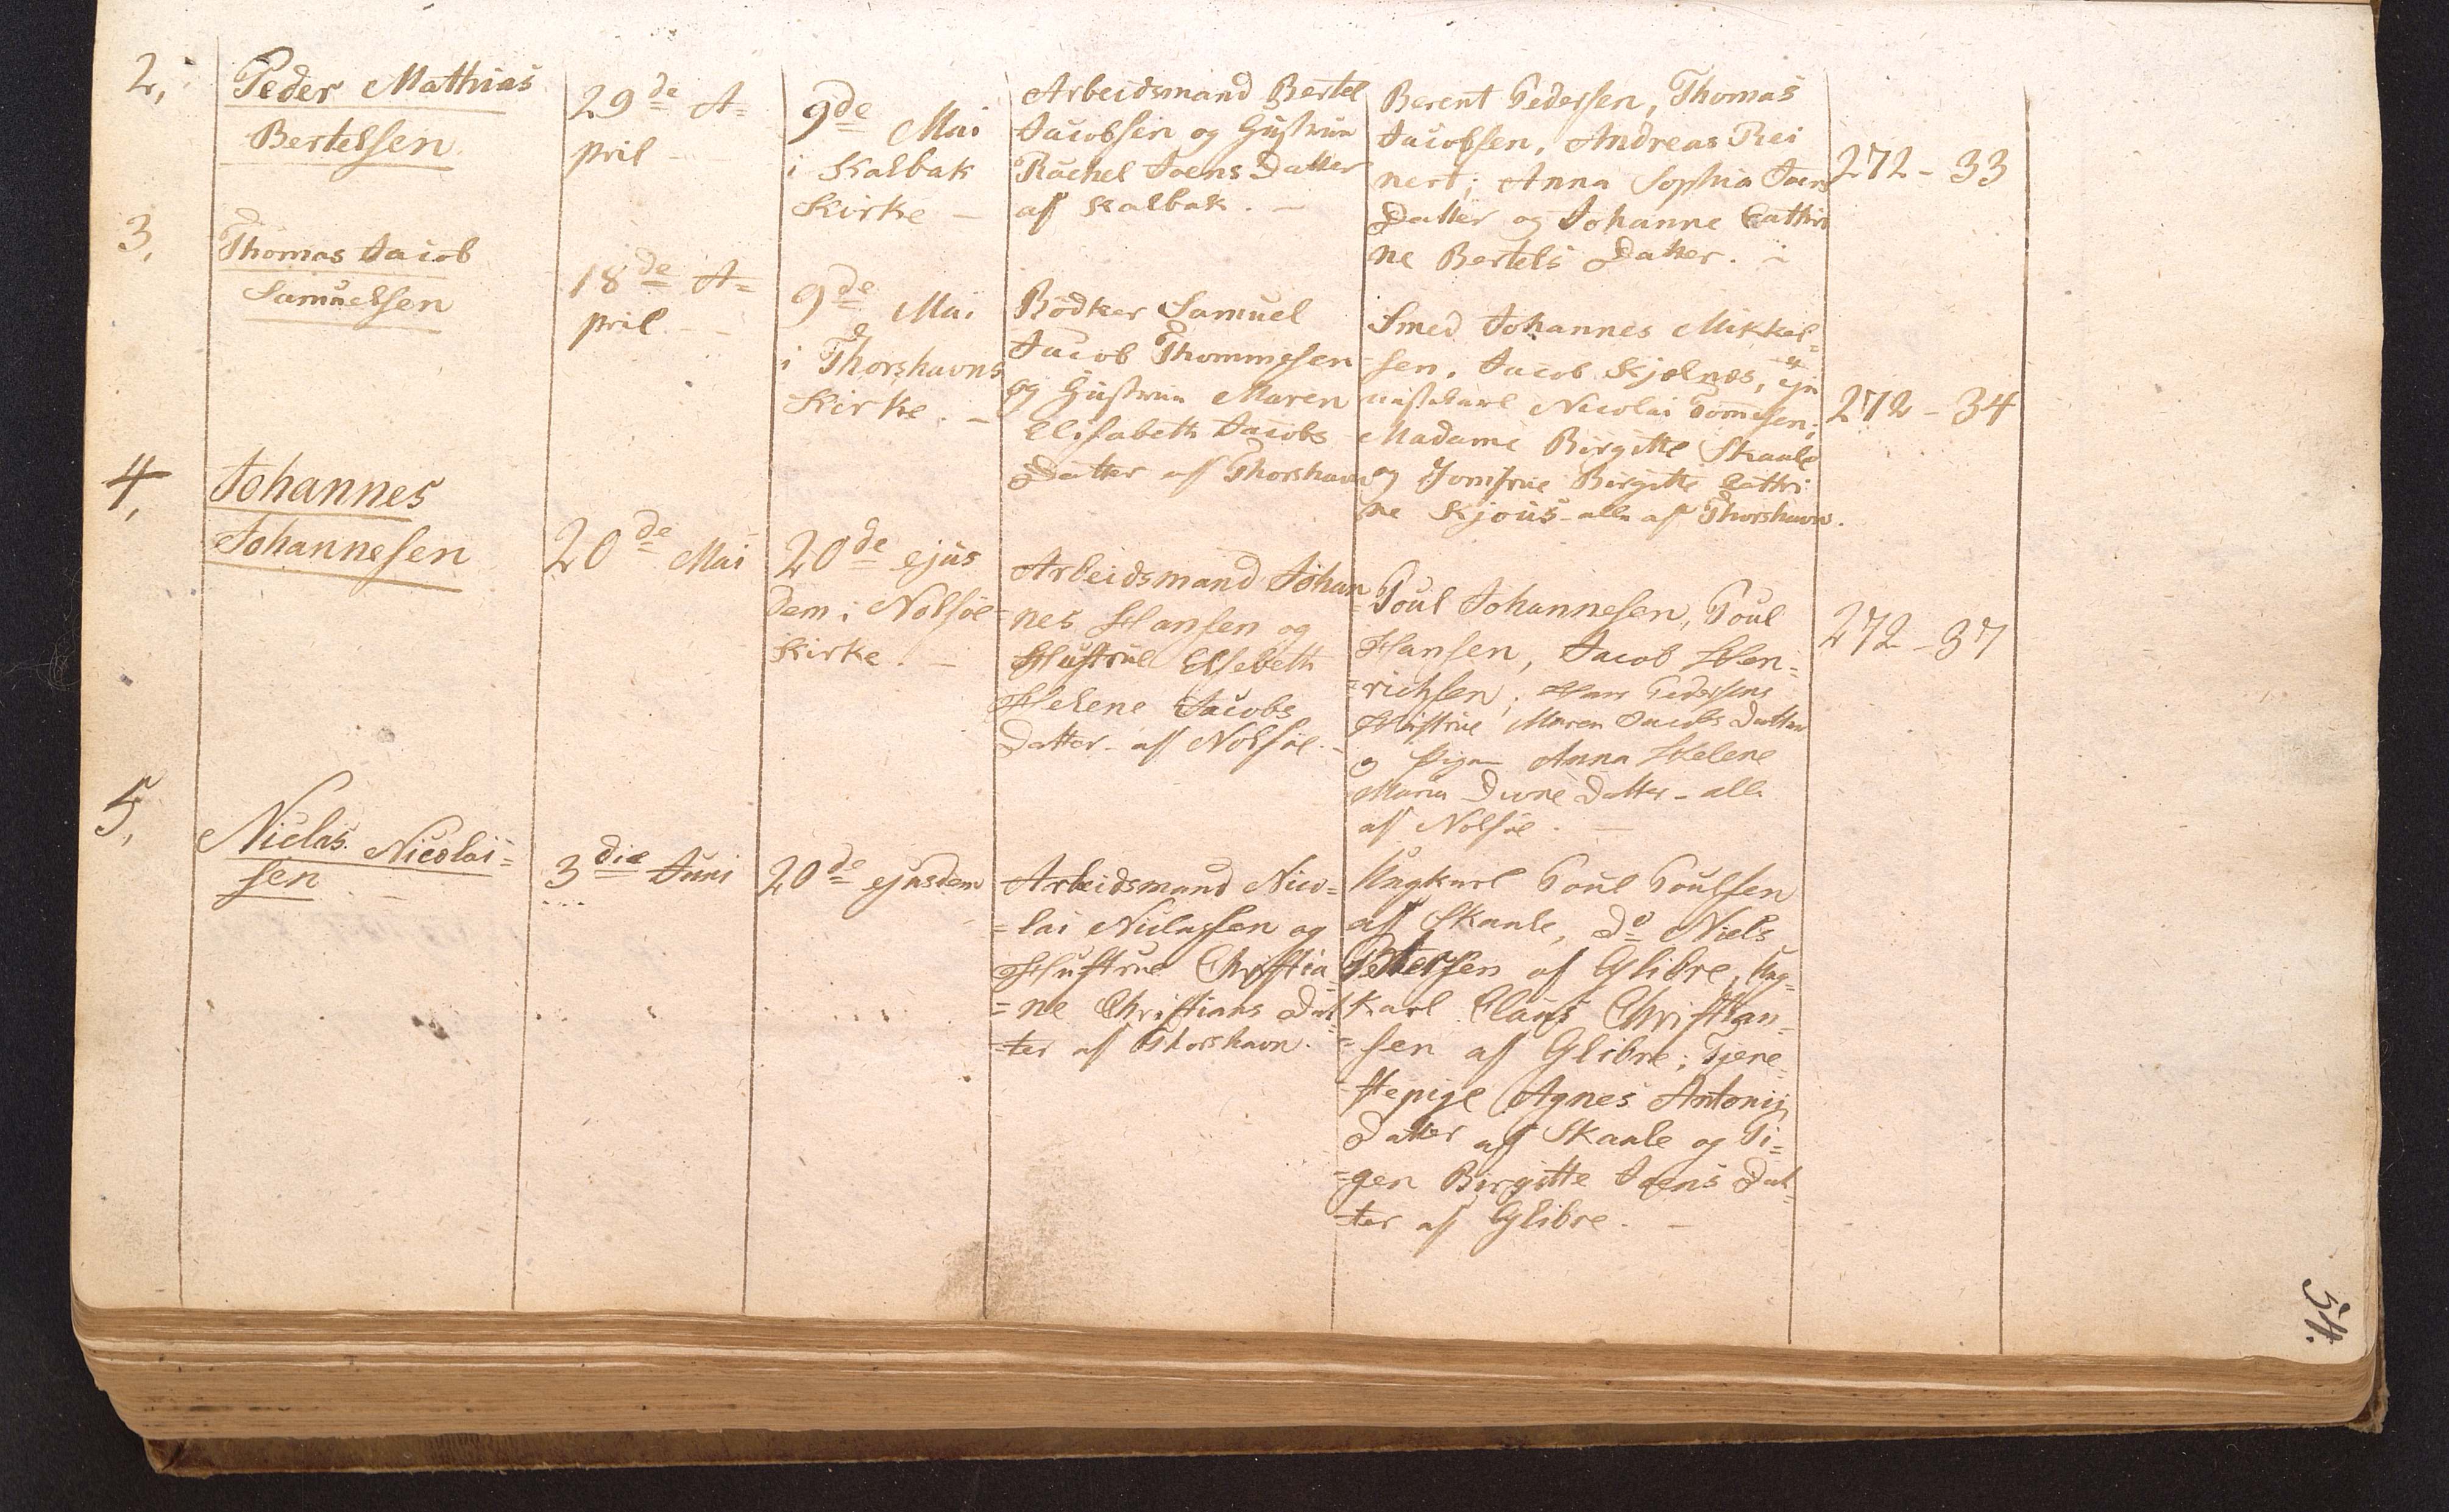 2,
Peder Mathias
Bertelsen
29de A=
pril
9de Mai
i Kalbak
Kirke
Arbeidsmand Bertel
Jacobsen og Hustrue
Rachel Joens Datter
af Kalbak.
Berent Pedersen, Thomas
Jacobsen, Andreas Rei
nert; Anna Sophia Joens
Datter og Johanne Cathri
ne Bertels Datter.
272-33
3,
Thomas Jacob
Samuelsen
18de A=
pril
9de Mai
i Thorshavns
Kirke.
Bödker Samuel
Jacob Thommesen
og Hustrue Maren
Elisabeth Jacobs
Datter af Thorshavn
Smed Johannes Mikkel=
sen, Jacob Skjelnes,
Nicolai Tomesen;
Madame Birgitte Skaale
og Jomfrue Birgitte Cathri
ne Skjous alle af Thorshavn.
272-34
4,
Johannes
Johannesen
20de Mai
20de ejus
dem i Nolsöe
Kirke.
Arbeidsmand Johan
nes Hansen og
Hustrue Elsebeth
Helene Jacobs
Datter af Nolsöe.
Poul Johannesen, Poul
Hansen, Jacob Hen=
=richsen; Pedersens
Hustrue Maren Jacobs Datter
og Pigen Anna Helene
Maria Datter - alle
af Nolsöe.
272-37
5,
Niclas Nicolai=
sen
3die Juni
20de ejusdem
Arbeidsmand Nico=
=lai Niclassen og
Hustrue Christia
=ne Christians Dat
=ter af Thorshavn.
Ungkarl Poul Poulsen
af Skaale, do Niels
Petersen af Glibre, Ung=
karl Claus Christian=
=sen af Glibre; Tjene
stepige Agnes Antonij
Datter af Skaale og Pi=
=gen Birgitte Joens Dat
=ter af Glibre.
54.